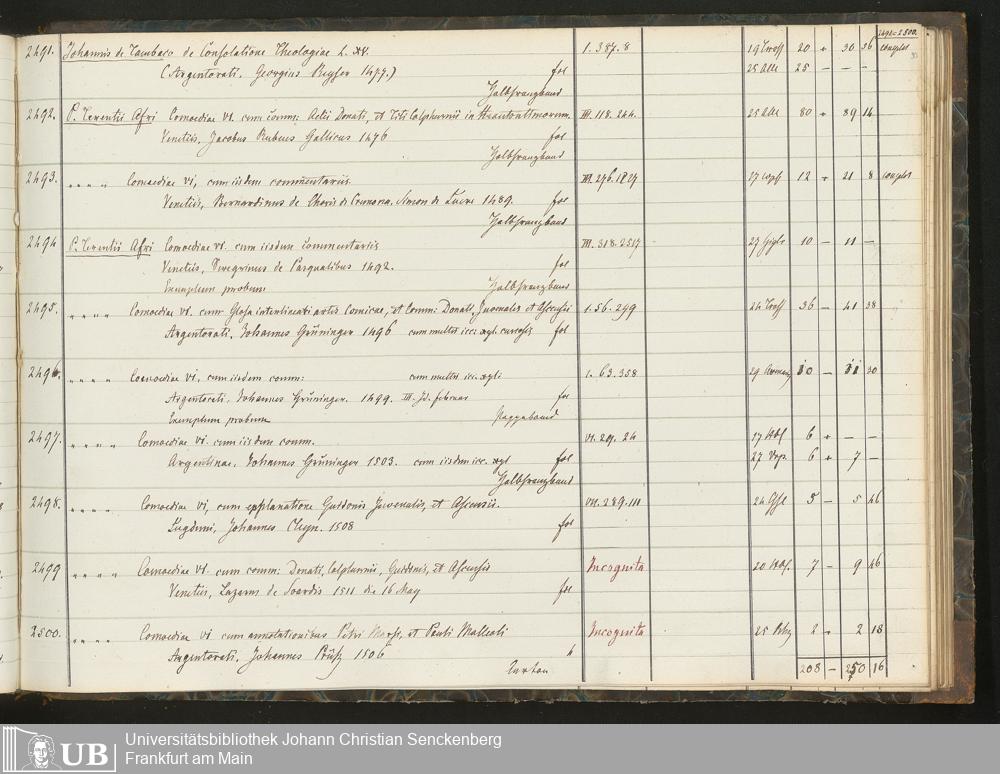 2491-2500.
2491. Johannis de Tambaco de Consolatione Theologiae L. XV. 1.387.8 19 20 + 30 36 complet
(Argentorati, Georgius Reyser 1477.) fol 25 Alle 25 — — —
Halbfranzband
2492. P. Terentii Afri Comoediae VI. cum comm: Aelii Donati, et Titi Calphurnii in Heautontimorum. III. 118. 244. 25 Alle 80 + 89 14
Venetiis, Jacobus Rubeus Gallicus 1476 fol
Halbfranzband
2493. " " " " Comoediae VI, cum iisdem commentariis. III. 276. 1827 27 12 + 21 8 complet
Venetiis, Bernardinus de Choris de Cremona, Simon de Luere 1489. fol
Halbfranzband
2494 P. Terentii Afri Comoediae VI. cum iisdem commentariis III. 318. 2517 27 10 — 11 —
Venetiis, Peregrinus de Pasqualibus 1492. fol
Exemplum probum Halbfranzband
2495. " " " " Comoediae VI. cum Glosa interlineari artis Comicae, et Comm: Donati, Juvenalis et Ascensii 1. 56. 249 24 36 — 41 38
Argentorati, Johannes Grüninger 1496 cum multis icc: xyl. curiosis fol
2496. " " " " Comoediae VI, cum iisdem comm: cum multis icc. xyli 1. 63. 358 29 10 — 11 30
Argentorati, Johannes Grüninger. 1499. III. Id. Februar fol
Exemplum probum Pappeband
2497. " " " " Comoediae VI. cum iisdem comm. VI. 24 17 6 + — —
Argentinae, Johannes Grüninger 1503. cum iisdem icc. xyl fol 27 6 + 7 —
Halbfranzband
2498. " " " " Comoediae VI, cum explanatione Guidonis Juvenalis, et Ascensii. VII. 289. 111 24 5 — 5 46
Lugduni, Johannes Cleyn. 1508 fol
2499 " " " " Comoediae VI. cum comm: Donati, Calphurnii, Guidonis, et Ascensii Incognita 20 7 — 9 46
Venetiis, Lazarus de Soardis 1511 die 16 May fol
2500. " " " " Comoediae VI cum annotationibus Petri Marsi, et Pauli Malleoli Incognita 25 2 2 18
Argentorati, Johannes Prüss 1506 4
Carton 208 — 250 16
UB Universitätsbibliothek Johann Christian Senckenberg
Frankfurt am Main